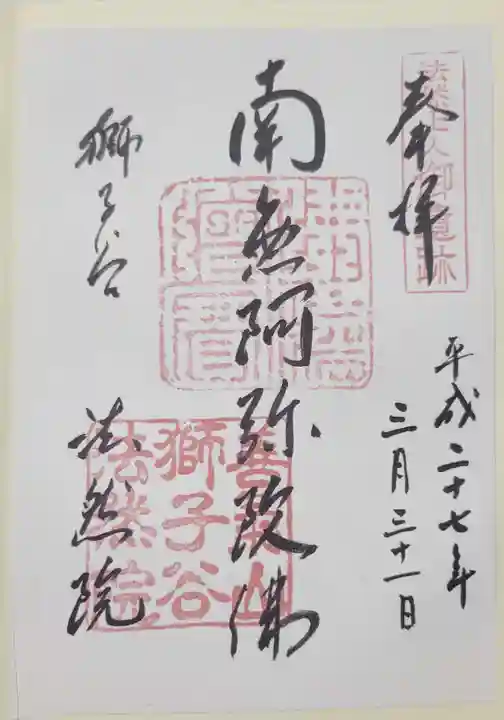 奉拝
法然上人御霊跡
平成二十七年
三月三十一日
南無阿弥陀佛
獅子谷
法然院
善氣山
獅子谷
法然院